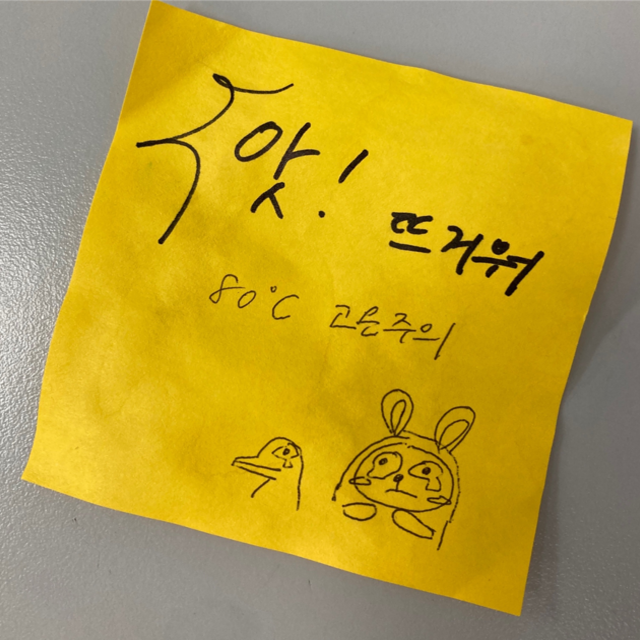 앗! 뜨거워
80°C 고온주의